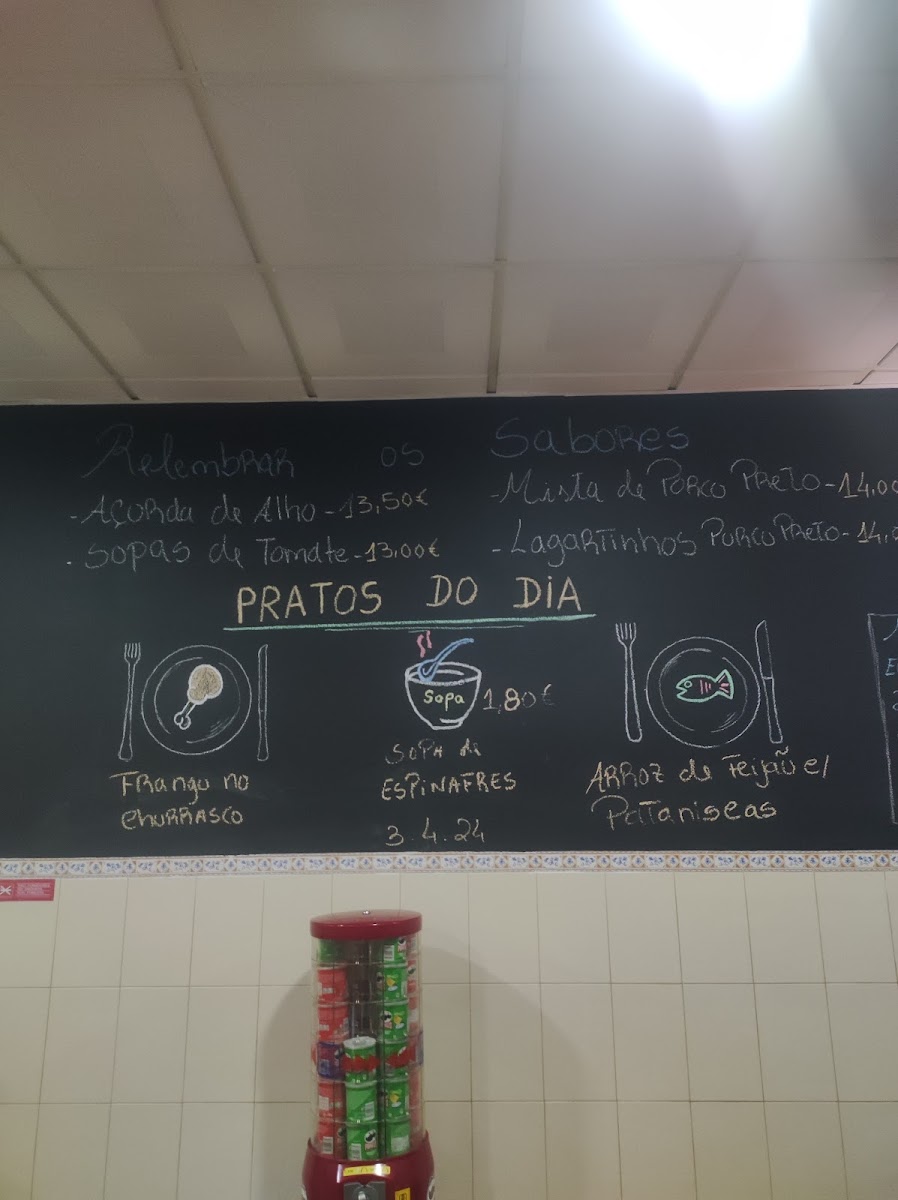 Relembrar os Sabores
- Açorda de Alho - 13,50€
. Sopas de Tomate - 13,00€
- Mista de Porco Preto - 14,00
- Lagartinhos Porco Preto - 14,0
PRATOS DO DIA
Frango no
Churrasco
Sopa 1,80€
Sopa de
ESPINAFRES
3.4.24
Arroz de Feijão e/
Pataniscas